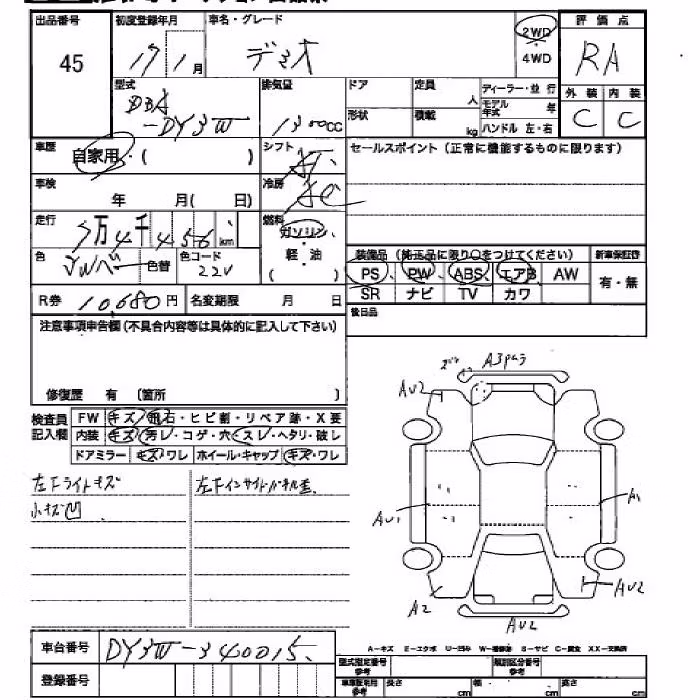 出品番号 初度登録年月 車名・グレード 評価点
45 17年1月 デミオ 2WD 4WD RA
型式 排気量 ドア 定員 人 ディーラー・並行 外装 内装
DBA-DY3W 1300cc 形状 積載 kg モデル年式 年 C C
ハンドル 左・右
車歴 自家用・( ) シフト セールスポイント(正常に機能するものに限ります)
車検 年 月( 日) 冷房 AC
走行 万 4千 456 km 燃料 ガソリン
色 色替 色コード 22V 軽・油 ( )
装備品(純正品に限り○をつけてください) 新車保証書
PS PW ABS エアB AW 有・無
SR ナビ TV カワ
R券 10,680円 名変期限 月 日
後日品
注意事項申告欄(不具合内容等は具体的に記入して下さい)
修復歴 有 〔箇所 〕
検査員記入欄 FW キズ・飛石・ヒビ割・リペア跡・X要
内装 キズ・汚レ・コゲ・穴・スレ・ヘタリ・破レ
ドアミラー キズ・ワレ ホイール・キャップ キズ・ワレ
左下ライトキズ 左下インサイドパネル歪
小キズ凹
AU2
AU1 A1
A2 AU2
AU2
A-キズ E-エクボ U-凹み W-補修跡 S-サビ C-腐食 XX-交換済
車台番号 DY3W-340015
型式指定番号 参考 類別区分番号 参考
登録番号
車庫証明用 参考 長さ cm 幅 cm 高さ cm